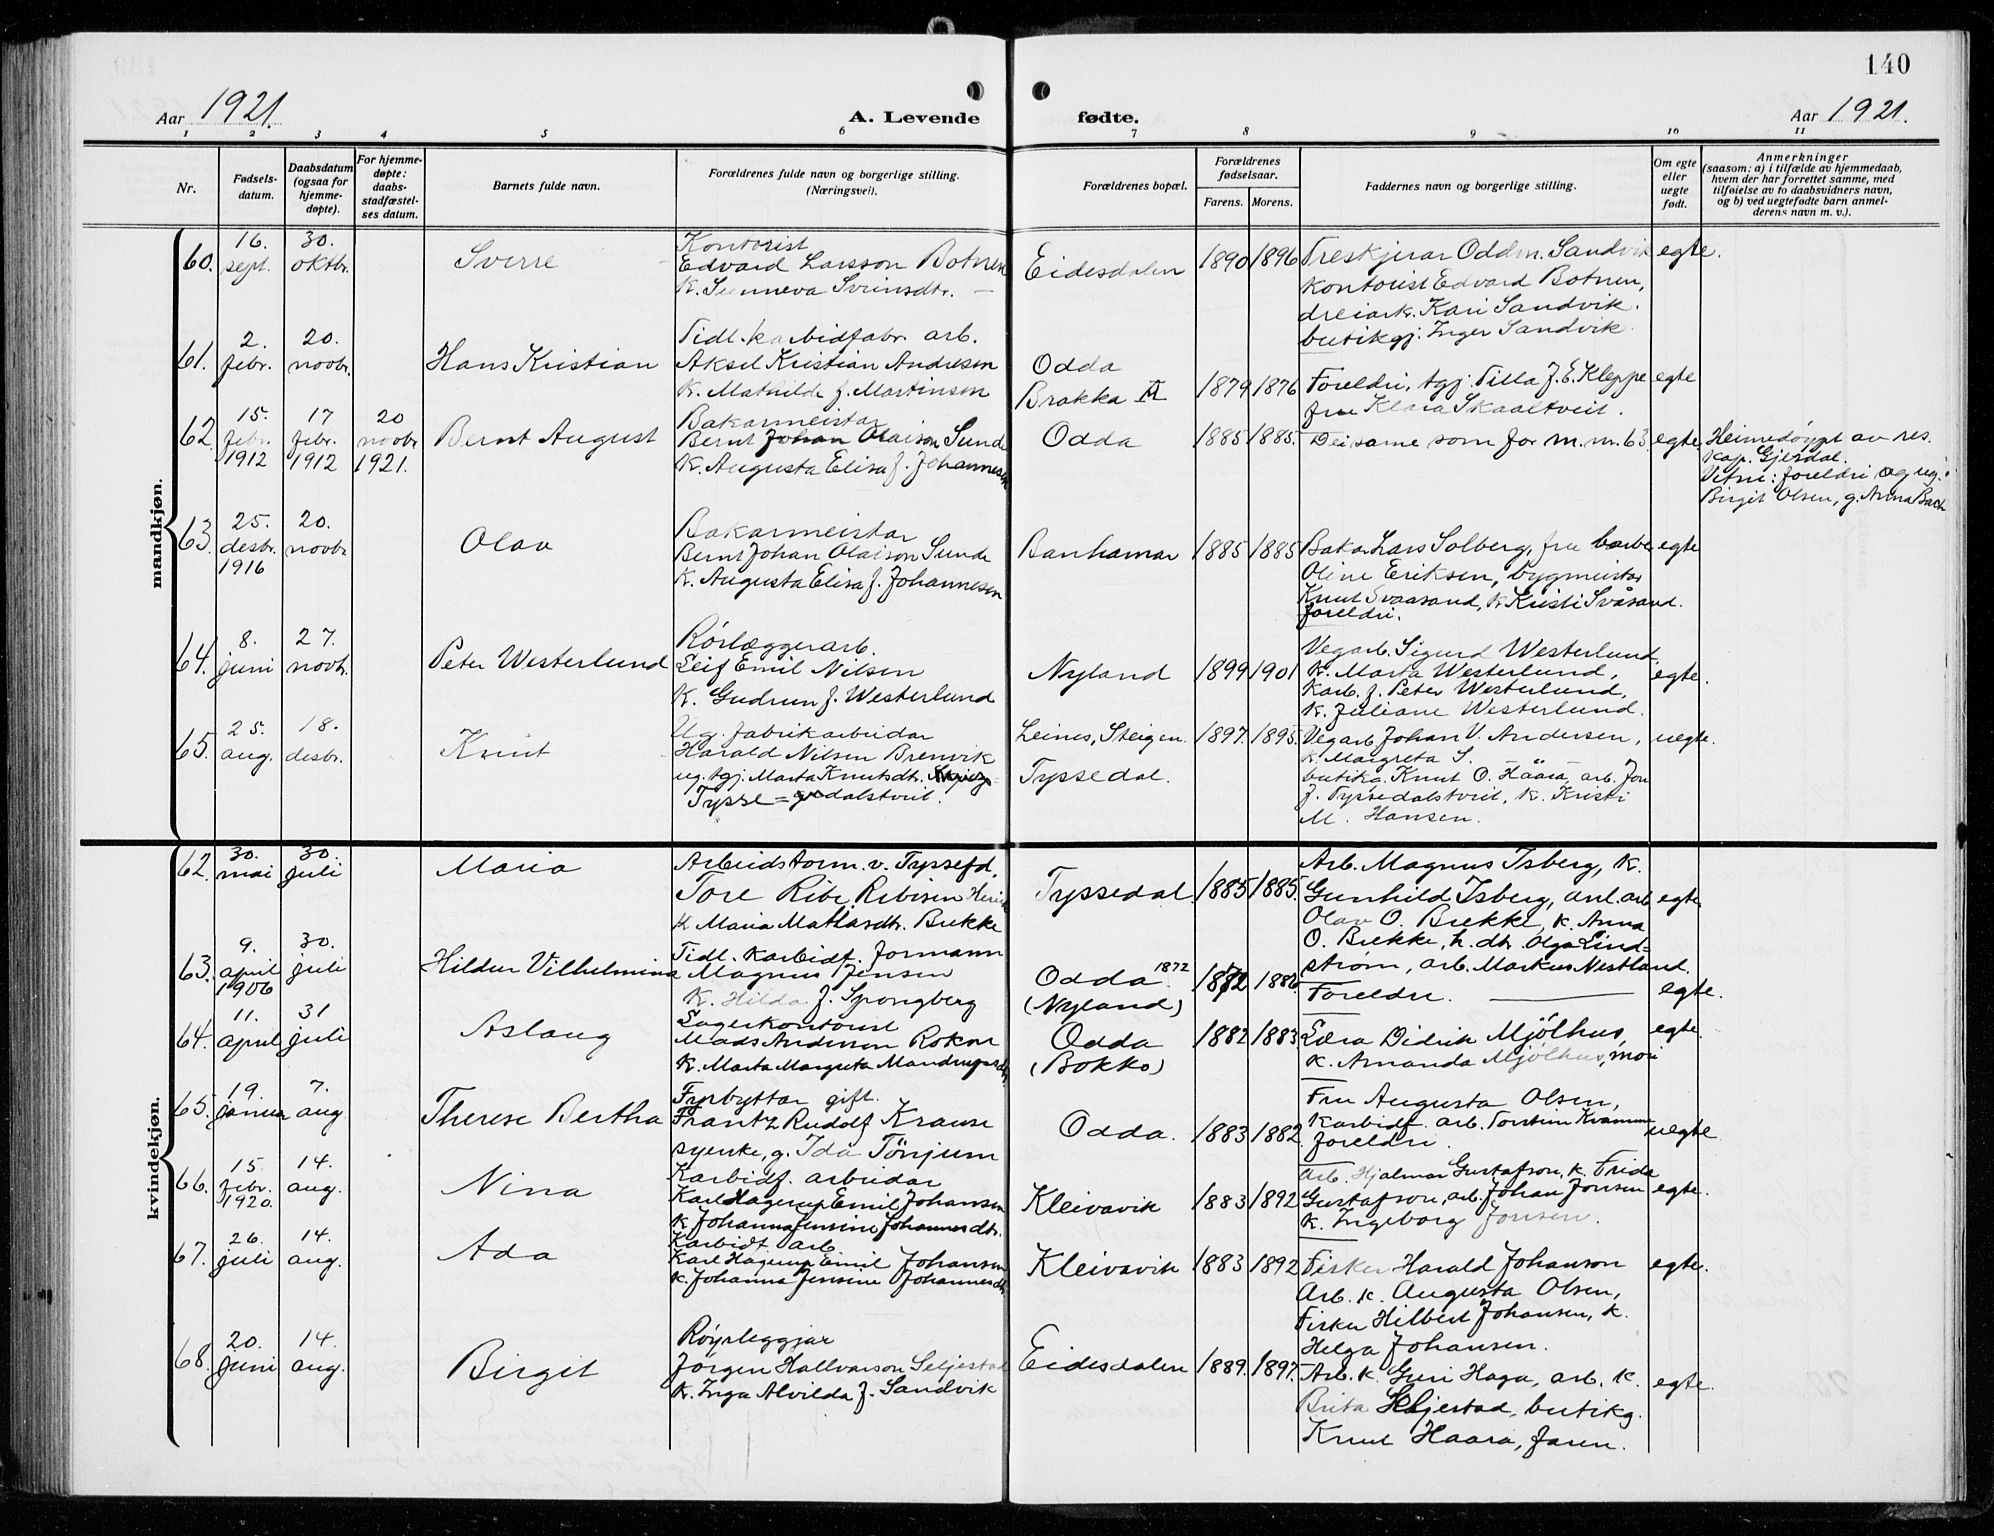 140
Aar 1921.
A. Levende fødte.
Aar 1921.
1 2 3 4 5 6 7 8 9 10 11
Nr.
Fødsels-
datum.
Daabsdatum
(ogsaa for
hjemme-
døpte).
For hjemme-
døpte:
daabs-
stadfæstel-
ses datum.
Barnets fulde navn.
Forældrenes fulde navn og borgerlige stilling.
(Næringsvei).
Forældrenes bopæl.
Forældrenes
fødselsaar.
Farens. Morens.
Faddernes navn og borgerlige stilling.
Om egte
eller
uegte
født.
Anmerkninger
(saasom: a) i tilfælde av hjemmedaab,
hvem der har forrettet samme, med
tilføielse av to daabsvidners navn,
og b) ved uegtefødte barn anmel-
derens navn m. v.).
mandkjøn.
60.
16.
sept.
30.
oktbr.
Sverre
Kontorist
Edvard Larsson Botnen
k. Sunneva Sveinsdtr.
Eidesdalen
1890 1896
Treskjerar Oddm. Sandvik
kontorist Edvard Botnen,
dreiark. Kari Sandvik.
butikgj. Inger Sandvik.
egte.
61.
2.
febr.
20.
novbr.
Hans Kristian
Tidl. karbidfabr. arb.
Aksel Kristian Andresen
k. Mathilde f. Martinsen
Odda
Brakka II
1879 1876
Foreldri, tgj. Tilla J. E. Kleppe
fru Klara Skaaltveit.
egte
62
15.
febr.
1912
17
febr.
1912
20
novbr
1921.
Bernt August
Bakarmeistar
Bernt Johan Olaison Sunde
k. Augusta Elisa f. Johannesen
Odda
1885 1885.
Dei same som for m.m. 63.
egte
Heimedøypt av res.
kap. Gjerdal.
Vitni: foreldri og ug.
Birgit Olsen, g. Anna Bach
63.
25.
desbr.
1916
20.
novbr
Olav
Bakarmeistar
Bernt Johan Olaison Sunde
k. Augusta Elisa f. Johannesen
Banhamar
1885 1885
Bakar Lars Solberg, fru
Oline Eriksen, bygmeistar
Knut Svaasand, k. Kristi Svåsand.
foreldri.
egte
64.
8.
juni
27.
novb.
Peter Westerlund
Rörlæggerarb.
Leif Emil Nilsen
k. Gudrun f. Westerlund
Nyland
1899 1901
Vegarb. Sigurd Westerlund.
k. Marta Westerlund,
karb. f. Peter Westerlund,
k. Juliane Westerlund.
egte.
65.
25.
aug.
18.
desbr.
Knut
Ug. fabrikarbeidar
Harald Nilsen Brenvik
ug. tgj. Marta Knutsdtr.
Tysse=dalstveit.
Leines, Steigen.
Tyssedal.
1897. 1895.
Vegarb. Johan V. Andersen,
k. Margreta S.
butikg. Knut O. Håara, arb. Jon
J. Tyssedalstveit, k. Kristi
M. Hansen.
uegte.
kvindekjøn.
62.
30.
mai
30.
juli
Maria
Arbeidsform. v. Tyssefd.
Tore Ribe Ribisen
k. Maria Mathiasdtr. Brekke
Tyssedal
1885 1885.
Arb. Magnus Isberg, k.
Gunhild Isberg, anl. arb
Olav O. Brekke, k. Anna
O. Brekke, h. dtr. Olga Lind=
strøm, arb. Markus Nestland.
egte
63.
9.
april
1906
30.
juli
Hildur Vilhelmina
Tidl. karbidf. formann
Magnus Jensen
k. Hilda f. Spongberg
Odda
(Nyland)
1872
1872 1886.
Foreldri.
egte.
64.
11.
april
31
juli
Aslaug
Lagerkontorist
Mads Andersen Rokne
k. Marta Margreta Mandrupsdtr
Odda
(Bokko)
1882 1883.
Læra Didrik Mjølhus,
k. Amanda Mjølhus, mori
egte.
65.
19.
januar
7.
aug.
Therese Bertha
Fyrbyttar gift.
Frantz Rudolf Krause
syerske, g. Ida Tönjum
Odda.
1883 1882
Fru Augusta Olsen,
karbidf. arb. Torstein Kvamme
foreldri.
uegte
66.
15.
febr.
1920.
14.
aug.
Nina
Karbidf. arbeidar
Karl Hagerup Emil Johansen
k. Johanna Jensine Johannesdtr.
Kleivavik
1883 1892
Arb. Hjalmar Gustafson, k. Frida
Gustafson, arb. Johan Jonsen
k. Ingeborg Jonsen.
egte.
67.
26.
juli
14.
aug.
Ada
Karbidf. arb.
Karl Hagerup Emil Johansen
k. Johanna Jensine Johannesdtr.
Kleivavik
1883 1892
Fisker Harald Johanson
Arb. k. Augusta Olsen,
Fisker Hilbert Johansen, k.
Helga Johansen.
egte.
68.
20.
juni
14.
aug.
Birgit
Røyrleggjar
Jörgen Hallvarson Seljestad
k. Inga Alvilda f. Sandvik
Eidesdalen
1889. 1897.
Arb. k. Guri Haga, arb. k.
Brita Seljestad, butikg.
Knut Haara, faren.
egte.